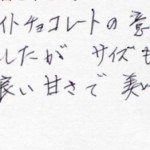 イトチョコレートの
したが サイズも
良い甘さで 美